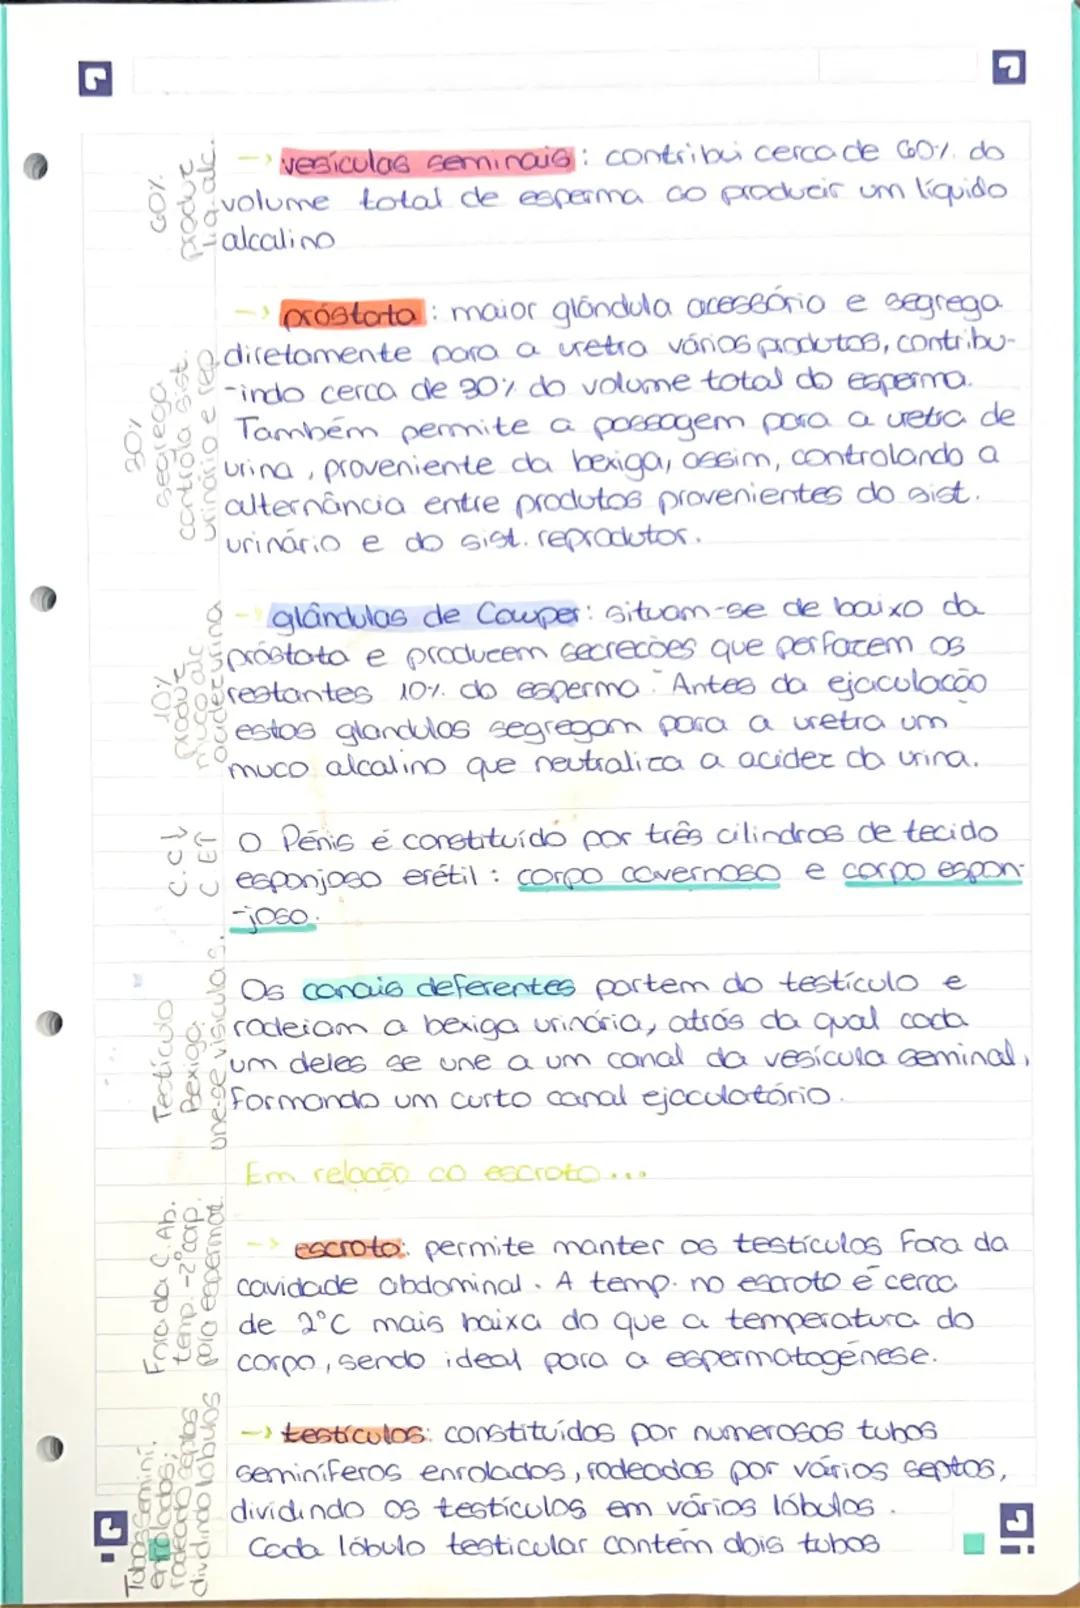 60%
produz
liq. alc.
-> vesículas seminais: contribui cerca de 60% do
volume total de esperma ao produzir um líquido
alcalino
30%
segrega
controla sist.
urinário e rep.
-> próstata: maior glândula acessório e segrega
diretamente para a uretra vários produtos, contribu-
-indo cerca de 30% do volume total do esperma.
Também permite a passagem para a uretra de
urina, proveniente da bexiga, assim, controlando a
alternância entre produtos provenientes do sist.
urinário e do sist. reprodutor.
10%
produz
muco alc
n acidez urina
-> glândulas de Cowper: situam-se de baixo da
próstata e produzem secreções que perfazem os
restantes 10% do esperma. Antes da ejaculação
estas glandulas segregam para a uretra um
muco alcalino que neutraliza a acidez da urina.
C.C↓
C E↑
O Pénis é constituído por três cilindros de tecido
esponjoso erétil: corpo cavernoso e corpo espon-
-joso.
Testículo
Bexiga.
une-se visiculas.
Os canais deferentes partem do testículo e
rodeiam a bexiga urinária, atrás da qual cada
um deles se une a um canal da vesícula seminal,
formando um curto canal ejaculatório.
Em relação ao escroto...
Fora da C. Ab.
temp. -2° corp.
para espermat.
-> escroto: permite manter os testículos fora da
cavidade abdominal. A temp. no escroto é cerca
de 2°C mais baixa do que a temperatura do
corpo, sendo ideal para a espermatogénese.
Tubos semini.
enrolados;
rodeando septos
dividindo lóbulos
-> testículos: constituídos por numerosos tubos
seminíferos enrolados, rodeados por vários septos,
dividindo os testículos em vários lóbulos.
Cada lóbulo testicular contém dois tubos